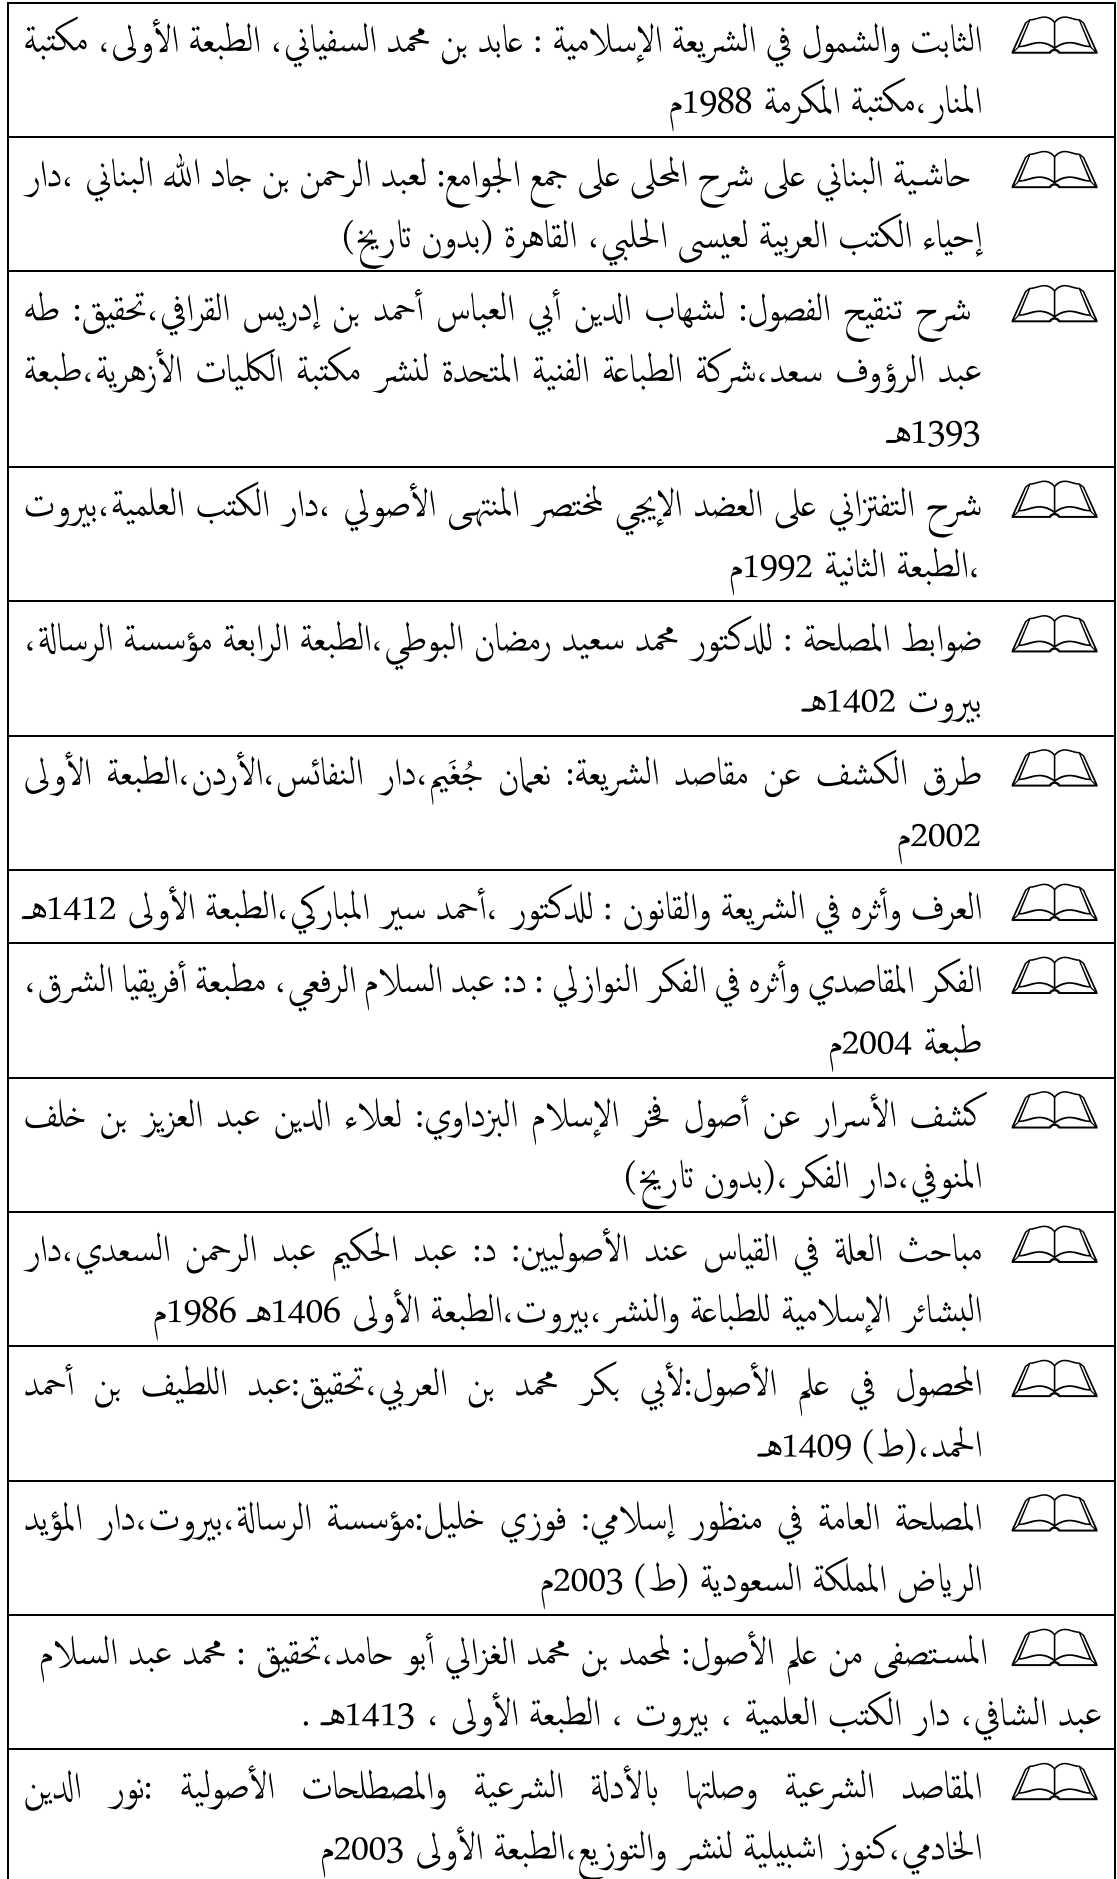 الثابت والشمول في الشريعة الإسلامية : عابد بن محمد السفياني، الطبعة الأولى، مكتبة
المنار،مكتبة المكرمة 1988م
حاشية البناني على شرح المحلى على جمع الجوامع: لعبد الرحمن بن جاد الله البناني ،دار
إحياء الكتب العربية لعيسى الحلبي، القاهرة (بدون تاريخ)
شرح تنقيح الفصول: لشهاب الدين أبي العباس أحمد بن إدريس القرافي،تحقيق: طه
عبد الرؤوف سعد،شركة الطباعة الفنية المتحدة لنشر مكتبة الكليات الأزهرية،طبعة
1393هـ
شرح التفتزاني على العضد الإيجي لمختصر المنتهى الأصولي ،دار الكتب العلمية،بيروت
،الطبعة الثانية 1992م
ضوابط المصلحة : للدكتور محمد سعيد رمضان البوطي،الطبعة الرابعة مؤسسة الرسالة،
بيروت 1402هـ
طرق الكشف عن مقاصد الشريعة: نعمان جُغَيم،دار النفائس،الأردن،الطبعة الأولى
2002م
العرف وأثره في الشريعة والقانون : للدكتور ،أحمد سير المباركي،الطبعة الأولى 1412هـ
الفكر المقاصدي وأثره في الفكر النوازلي : د: عبد السلام الرفعي، مطبعة أفريقيا الشرق،
طبعة 2004م
كشف الأسرار عن أصول فخر الإسلام البزداوي: لعلاء الدين عبد العزيز بن خلف
المنوفي،دار الفكر،(بدون تاريخ)
مباحث العلة في القياس عند الأصوليين: د: عبد الحكيم عبد الرحمن السعدي،دار
البشائر الإسلامية للطباعة والنشر،بيروت،الطبعة الأولى 1406هـ 1986م
المحصول في علم الأصول:لأبي بكر محمد بن العربي،تحقيق:عبد اللطيف بن أحمد
الحمد،(ط) 1409هـ
المصلحة العامة في منظور إسلامي: فوزي خليل:مؤسسة الرسالة،بيروت،دار المؤيد
الرياض المملكة السعودية (ط) 2003م
المستصفى من علم الأصول: لمحمد بن محمد الغزالي أبو حامد،تحقيق : محمد عبد السلام
عبد الشافي، دار الكتب العلمية ، بيروت ، الطبعة الأولى ، 1413هـ .
المقاصد الشرعية وصلتها بالأدلة الشرعية والمصطلحات الأصولية :نور الدين
الخادمي،كنوز اشبيلية لنشر والتوزيع،الطبعة الأولى 2003م